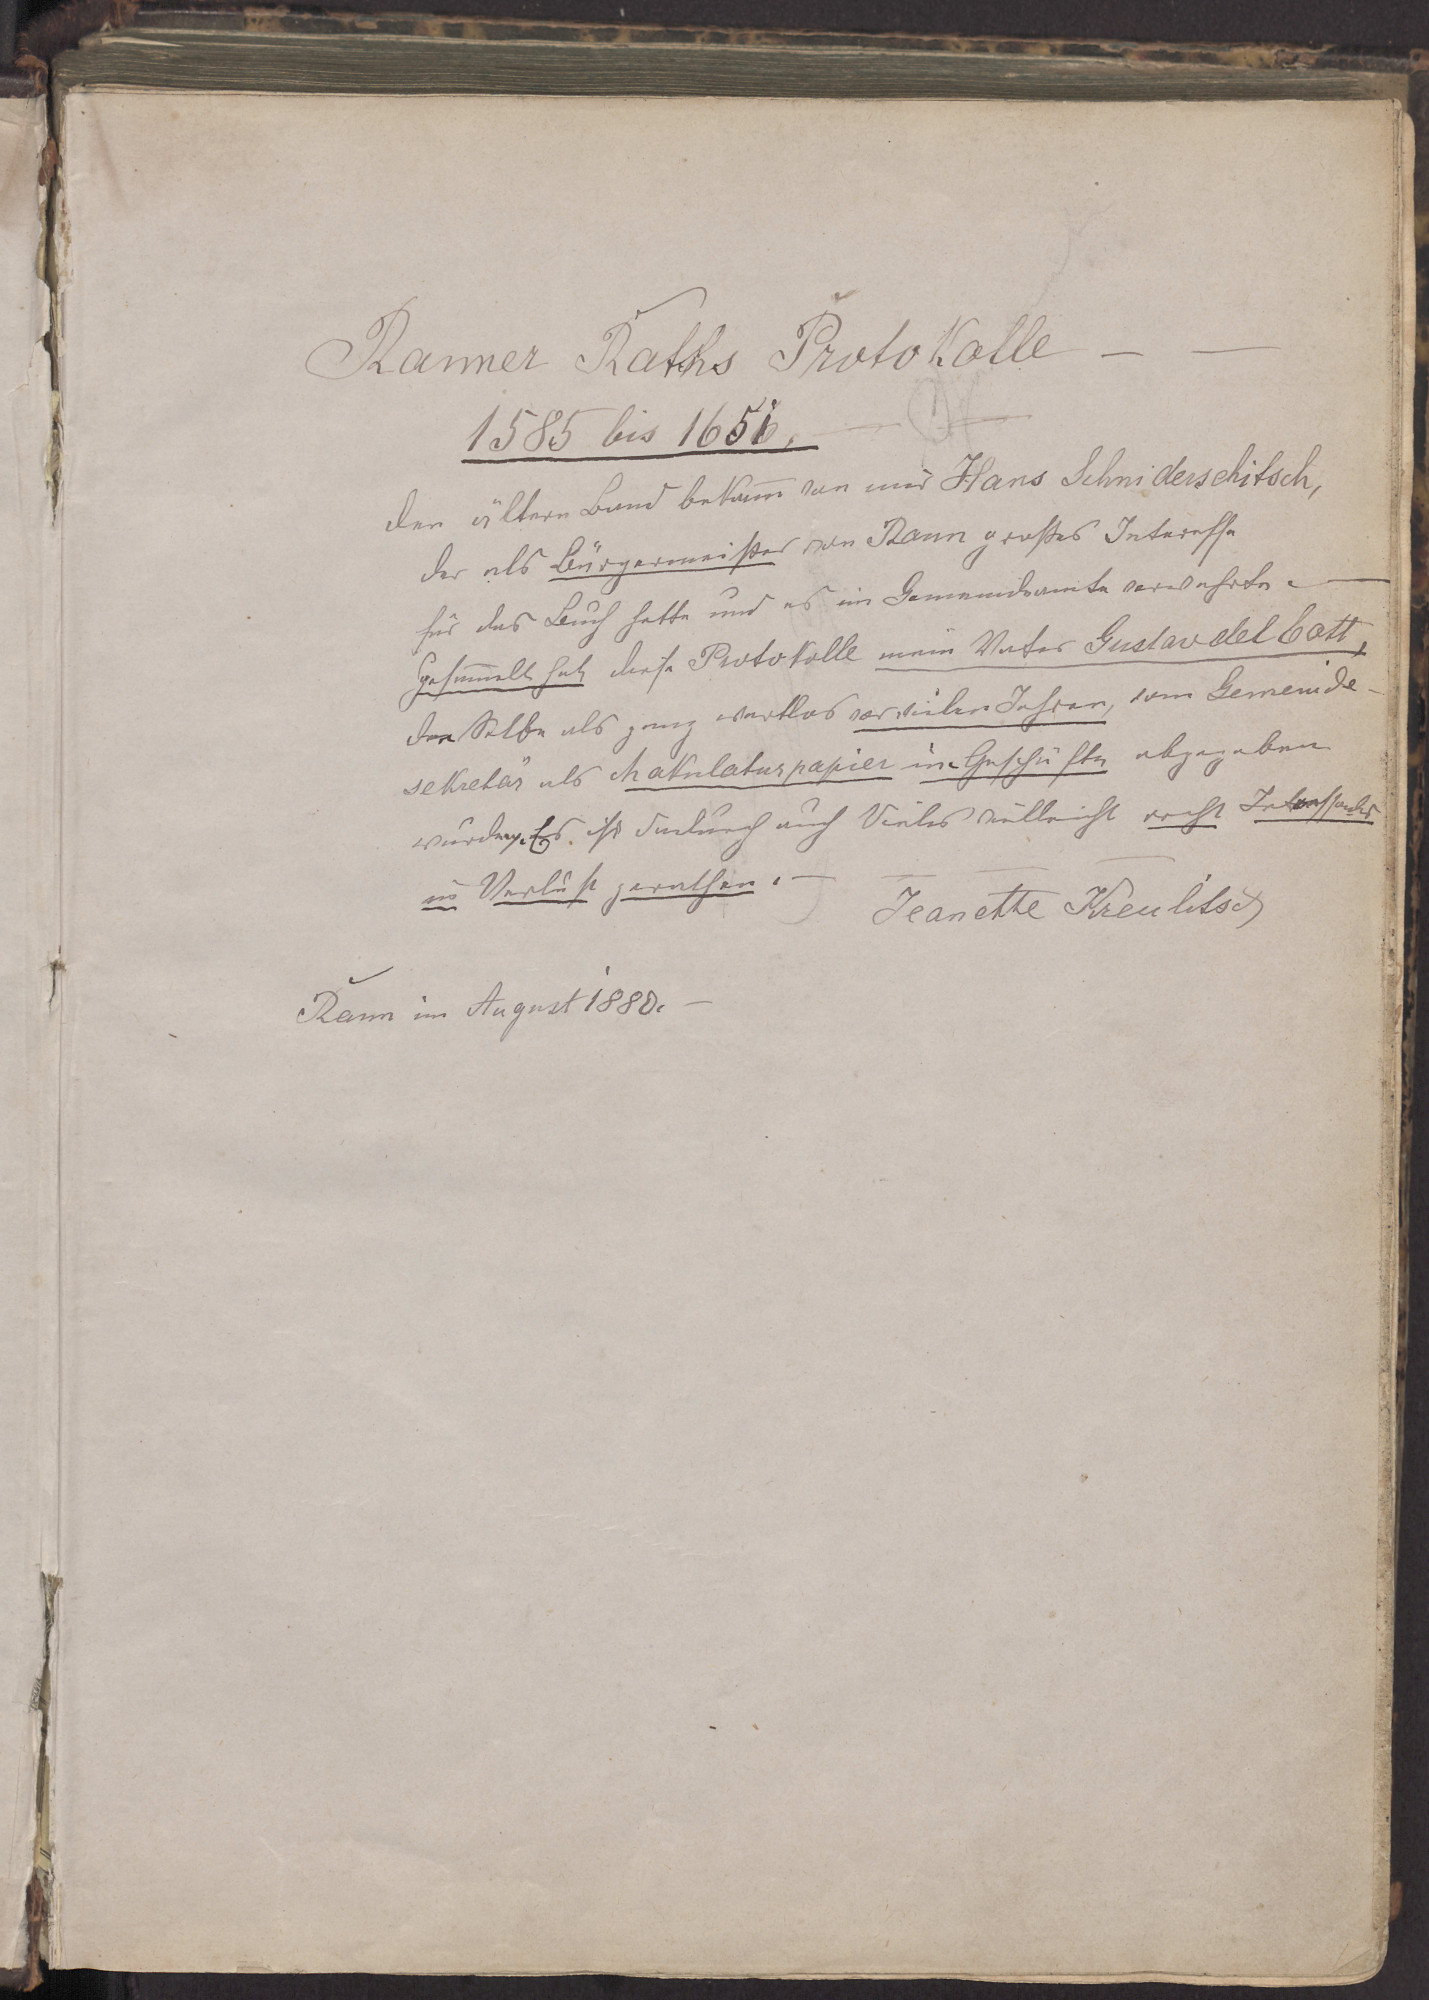 Ranner Raths Protokolle — —
1585 bis 1651.
Den ältern Band bekam̅ von mir Hans Schniderschitsch,
der als Bürgermeister von Rann großes Interesse
für das Buch hatte und es im Gemeindeamte verwahrte. —
Gesam̅elt hat diese Protokolle mein Vater Gustav del Cott,
da selbe als ganz wertlos vor vielen Jahren, vom Gemeinde-
sekretär als Makulaturpapier in Geschäfte abgegeben
wurden. Es ist dadurch auch Vieles vielleicht recht Interessantes
in Verlust gerathen. —
Jeanette Kreulitsch
Rann im August 1880. —